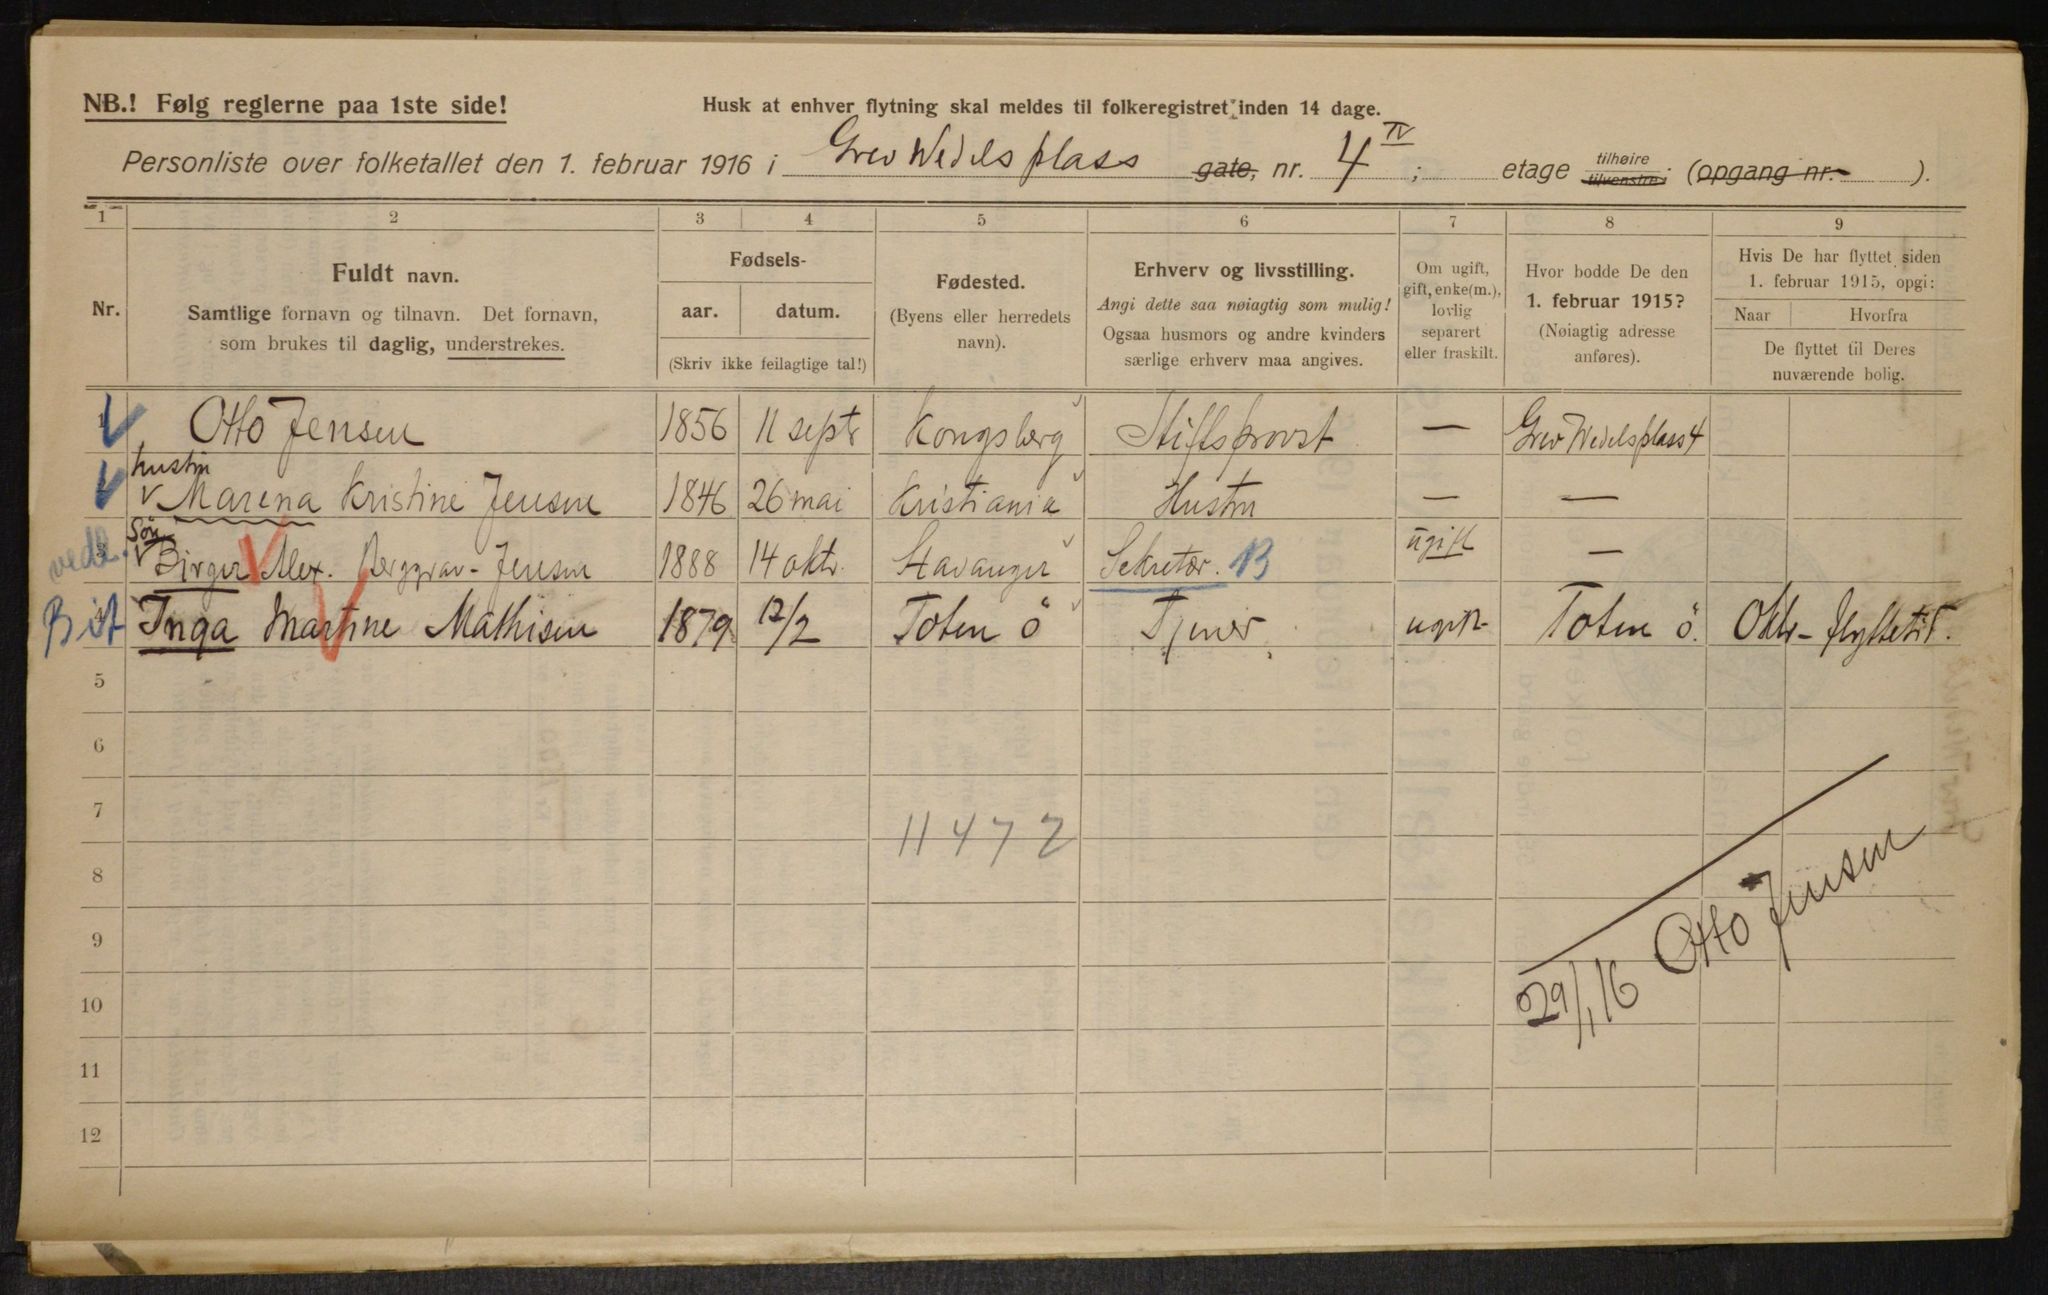 NB.! Følg reglerne paa 1ste side!
Husk at enhver flytning skal meldes til folkeregistret inden 14 dage.
Personliste over folketallet den 1. februar 1916 i Grev Wedels plass gate, nr. 4 IV ; etage tilhøire tilvenstre; (opgang nr. ).
1 2 3 4 5 6 7 8 9
Nr.
Fuldt navn.
Samtlige fornavn og tilnavn. Det fornavn,
som brukes til daglig, understrekes.
Fødsels-
aar. datum.
(Skriv ikke feilagtige tal!)
Fødested.
(Byens eller herredets
navn).
Erhverv og livsstilling.
Angi dette saa nøiagtig som mulig!
Ogsaa husmors og andre kvinders
særlige erhverv maa angives.
Om ugift,
gift, enke(m.),
lovlig
separert
eller fraskilt.
Hvor bodde De den
1. februar 1915?
(Nøiagtig adresse
anføres).
Hvis De har flyttet siden
1. februar 1915, opgi:
Naar Hvorfra
De flyttet til Deres
nuværende bolig.
1 Otto Jensen 1856 11 septr Kongsberg Stiftsprovst — Grev Wedelsplass 4
hustru
Marena Kristine Jensen 1846 26 mai Kristiania Hustru — —
Søn
3 Birger Alex. Berggrav-Jensen 1888 14 oktr. Stavanger Sekretær. B ugift —
Inga Martine Mathisen 1879 12/2 Toten ö Tjener ugift Toten ö. Oktr- flyttet
5
6
7
11472
8
9
10
11
12
29/1 16 Otto Jensen